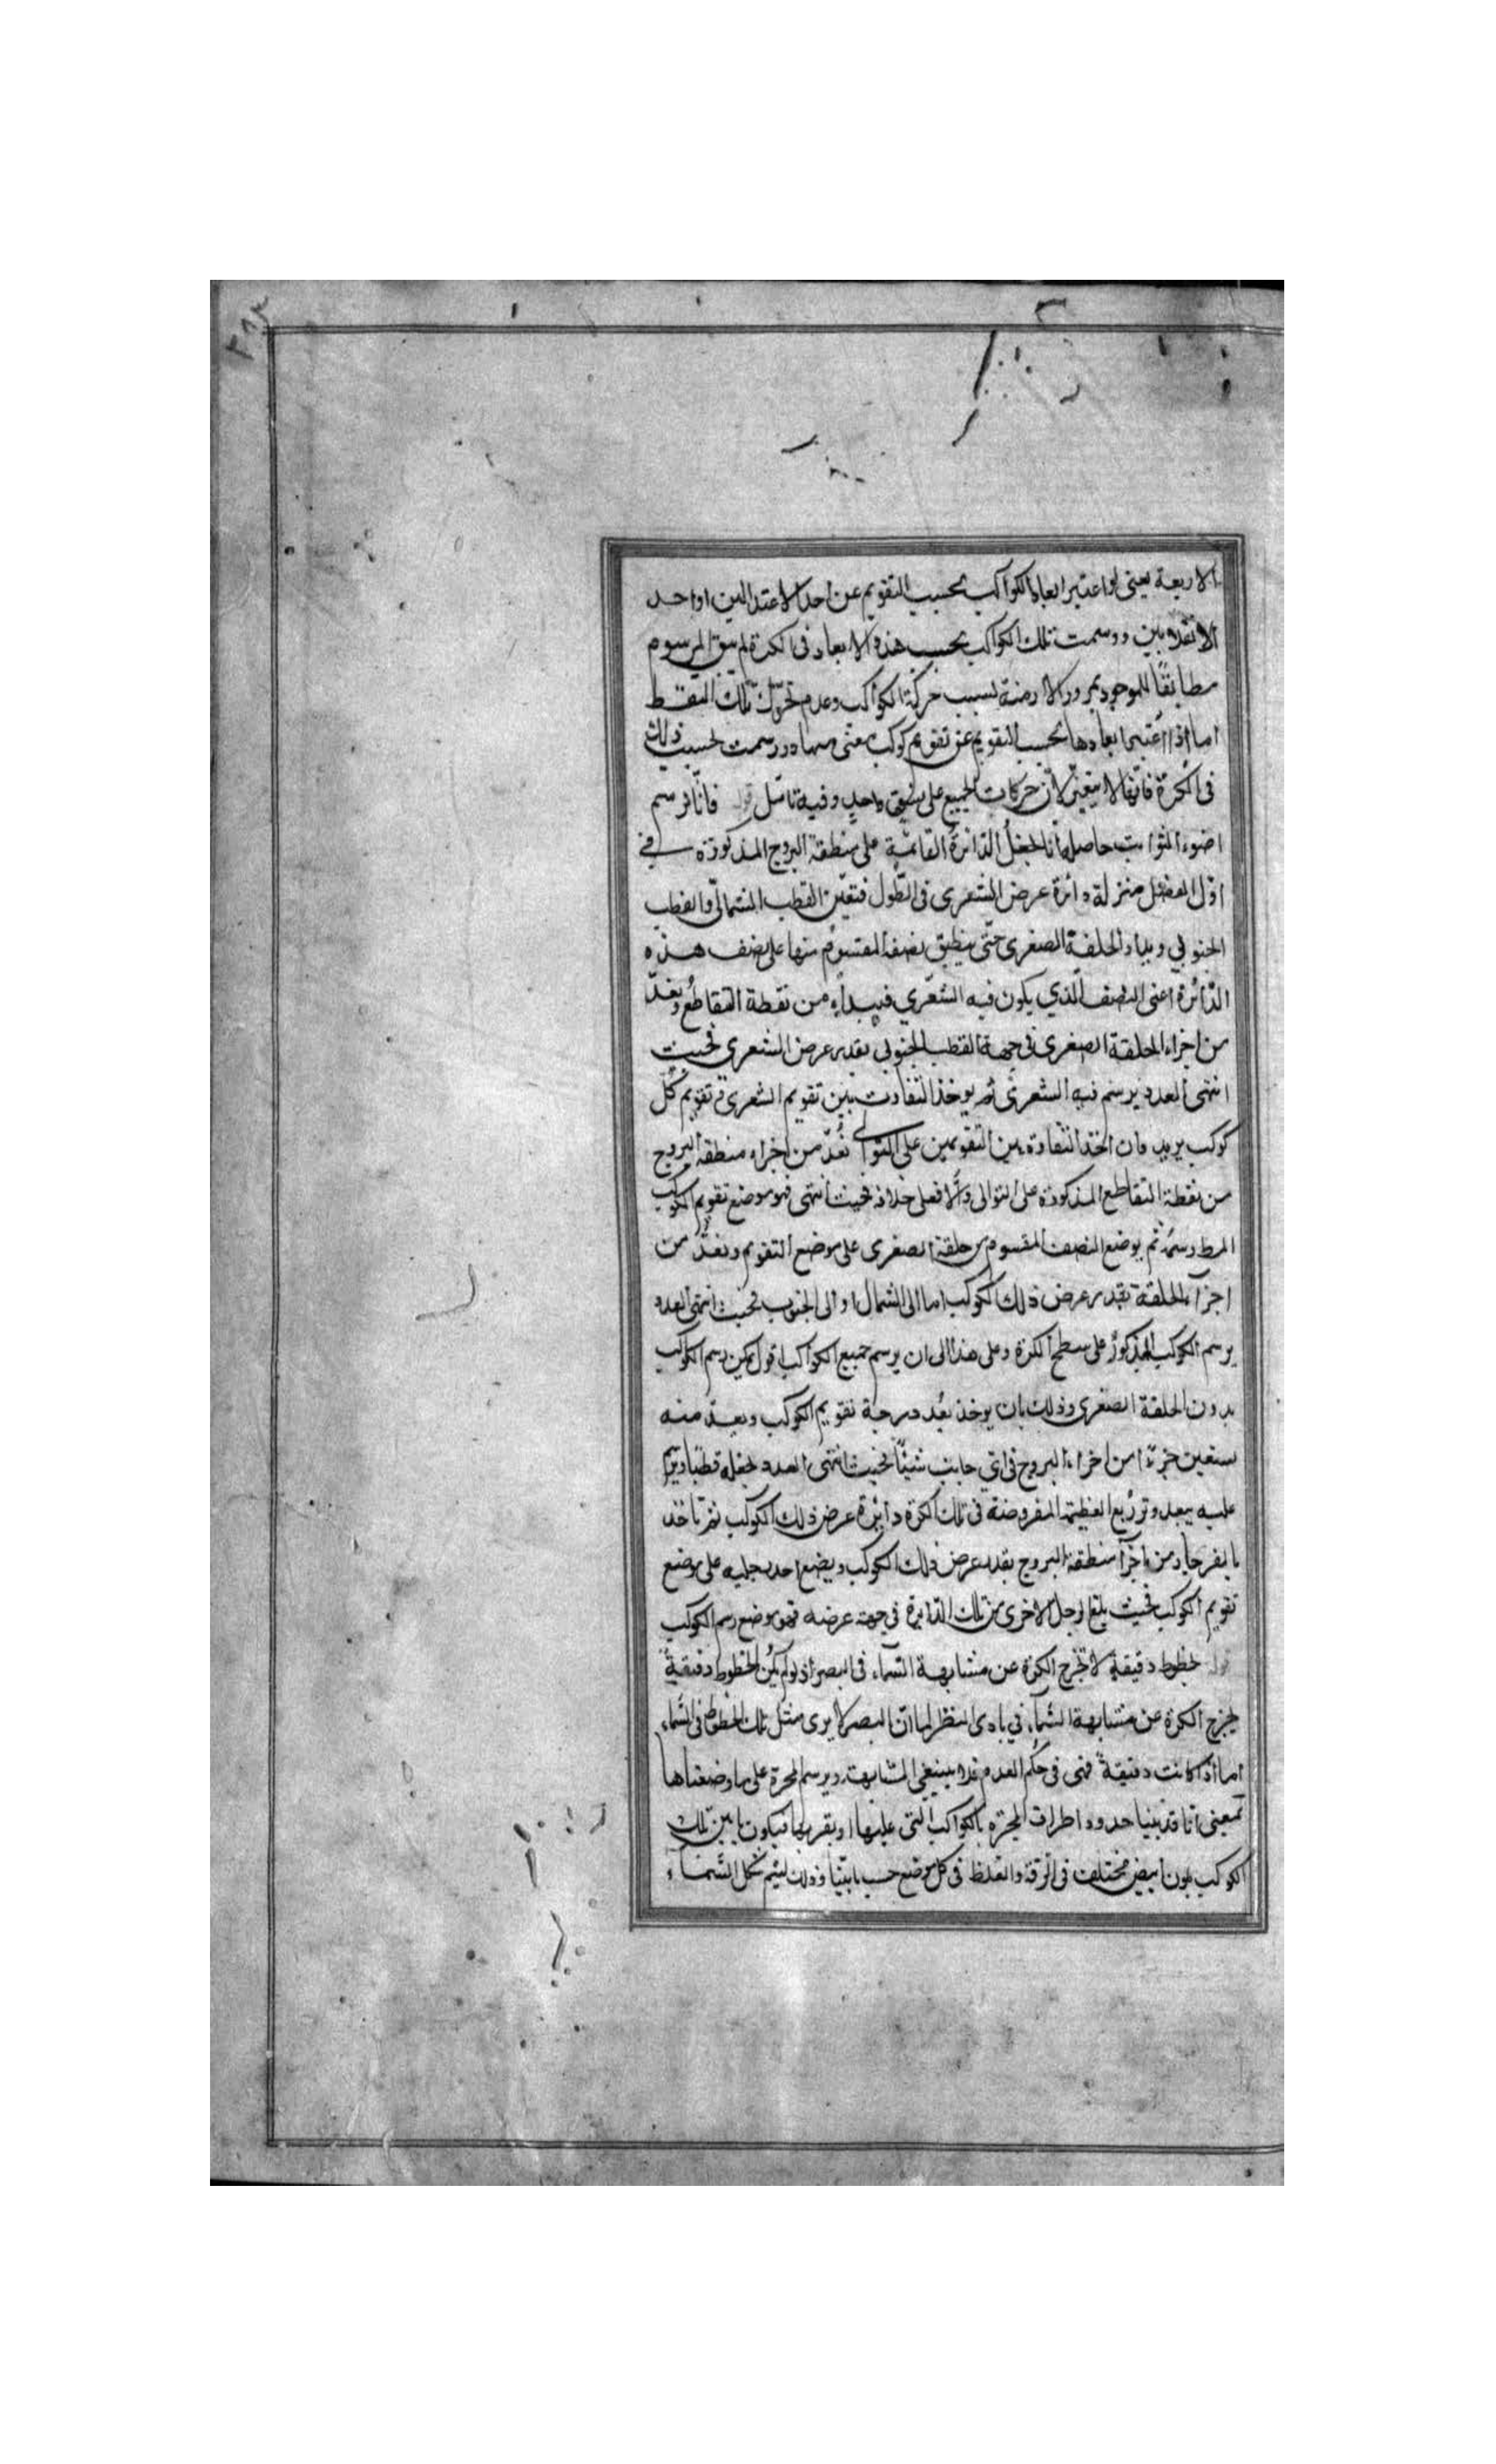 الاربعة يعنى لو اعتبر ابعاد الكواكب بحسب التقويم عن احد الاعتدالين او احد
الانقلابين و رسمت تلك الكواكب بحسب هذه الابعاد فى الكرة لم يبق المرسوم
مطابقًا للموجود بمرور الازمنة بسبب حركة الكواكب وعدم تحرّك تلك النقط
اما اذا اعتبر ابعادها بحسب التقويم عن تقويم كوكب معيّن منها و رسمت بحسب ذلك
فى الكرة فانّها لا يتغيّر لانّ حركات الجميع على نسق واحدٍ و فيه تامّل قوله فانّا نرسم
اضوء الثوابت حاصله انّا نجعل الدّائرة القائمة على منطقة البروج المذكورة فى
اوّل الفصل منزلة دائرة عرض الشعرى فى الطّول فتعيّن القطب الشمالىّ والقطب
الجنوبي ويدار الحلقة الصغرى حتّى ينطبق نصفه المقسوم منها على نصف هذه
الدّائرة اعنى النصف الّذي يكون فيه الشّعري فيبداء من نقطة التقاطع و يعدّ
من اجزاء الحلقة الصغرى فى جهة القطب الجنوبي بقدر عرض الشعرى فحيث
انتهى العدد يرسم فيه الشعرى ثم يوخذ التفاوت بين تقويم الشعرى و تقويم كلّ
كوكب يريد فان اخذ التفاوة بين التقويمين على التوالى نُعدّ من اجزاء منطقة البروج
من نقطة التقاطع المذكورة على التوالى والّا فعلى خلافه فحيث انتهى فهو موضع تقويم الكوكب
المط رسمُه ثم يوضع النصف المقسوم من حلقة الصغرى على موضع التقويم و نعدّ من
اجزاء الحلقة بقدر عرض ذلك الكوكب اما الى الشمال او الى الجنوب فحيث انتهى العدد
يرسم الكوكب المذكور على سطح الكرة وعلى هذا الى ان يرسم جميع الكواكب اقول يمكن رسم الكواكب
بدون الحلقة الصغرى وذلك بان يوخذ بُعد درجة تقويم الكوكب ويعدّ منه
تسعين جزءًا من اجزاء البروج فى اىّ جانب شئنًا فحيث انتهى العدد نجعله قطبًا ويرسم
عليه ببعد وتر ربع العظيمة المفروضة فى تلك الكرة دائرة عرض ذلك الكوكب ثم ناخذ
بالفرجار من اجزاء منطقة البروج بقدر عرض ذلك الكوكب ويضع احد رجليه على موضع
تقويم الكوكب فحيث بلغ الرجل الاخرى من تلك الدّايرة فى جهة عرضه فهو موضع رسم الكوكب
قوله خطوط دقيقةٍ لا تخرج الكرة عن مشابهة السّماء فى البصر اذ لو لم يكن الخطوط دقيقةً
يخرج الكرة عن مشابهة السّماء فى بادى النظر لما انّ البصر لا يرى مثل تلك الخطوط فى السّماء
اما اذا كانت دقيقةً فهى فى حكم العدم فلا ينبغى المشابهة ويرسم المجرة على ما وضعناها
بمعنى انا قد بينا حدود اطراف المجرّه بالكواكب الّتى عليها او بقربها فيكون ما بين تلك
الكوكب بلون ابيض مختلف فى الرقة والغلظ فى كل موضع حسب ما بيّنا وذلك ليتمّ شكل السّماء